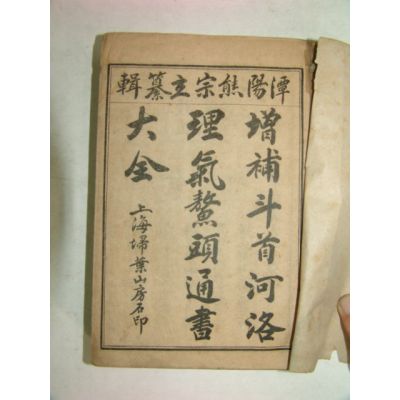 潭陽熊宗立纂輯
增補斗首河洛
理氣鰲頭通書
大全
上海埽葉山房石印